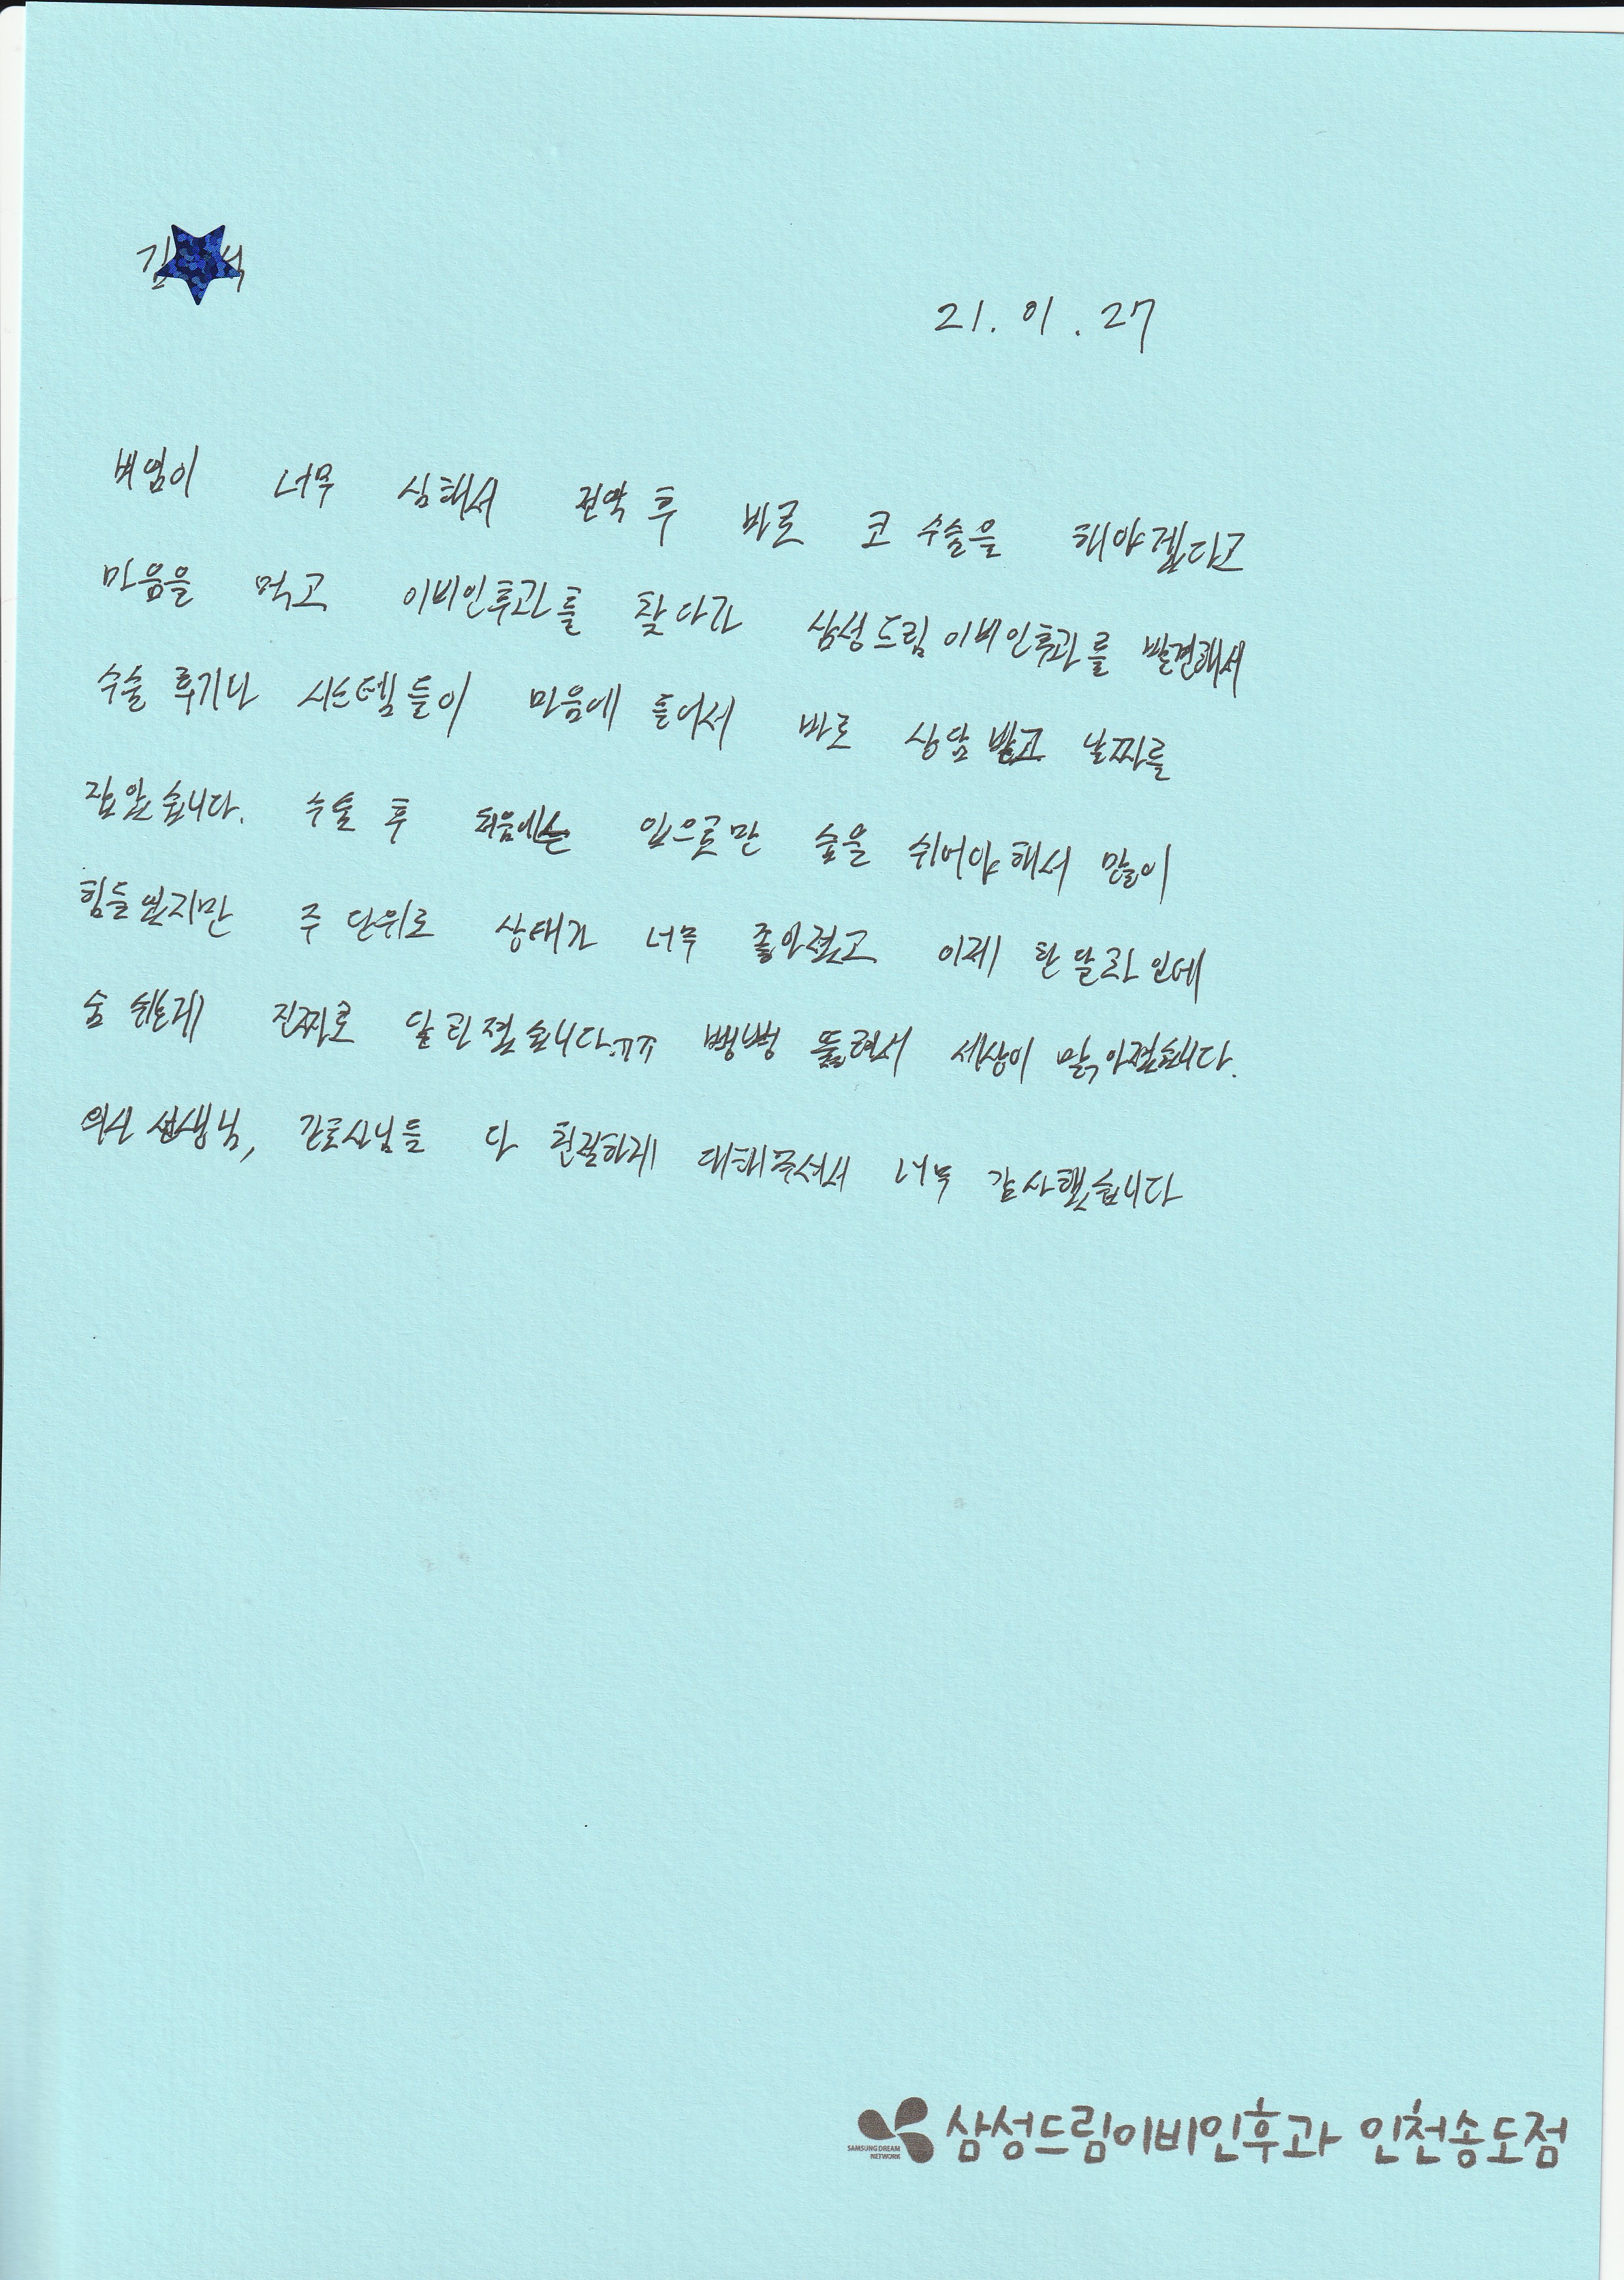 김
21. 01. 27
비염이 너무 심해서 전역 후 바로 코 수술을 해야겠다고
마음을 먹고 이비인후과를 찾다가 삼성드림이비인후과를 발견해서
수술 후기나 시스템들이 마음에 들어서 바로 상담 받고 날짜를
잡았습니다. 수술 후 처음에는 입으로만 숨을 쉬어야해서 많이
힘들었지만 주 단위로 상태가 너무 좋아졌고 이제 한달차인데
숨 쉬는게 진짜로 달라졌습니다ㅠㅠ 뻥뻥 뚫려서 세상이 맑아졌습니다.
의사 선생님, 간호사님들 다 친절하게 대해주셔서 너무 감사했습니다
SAMSUNG DREAM
NETWORK
삼성드림이비인후과 인천송도점